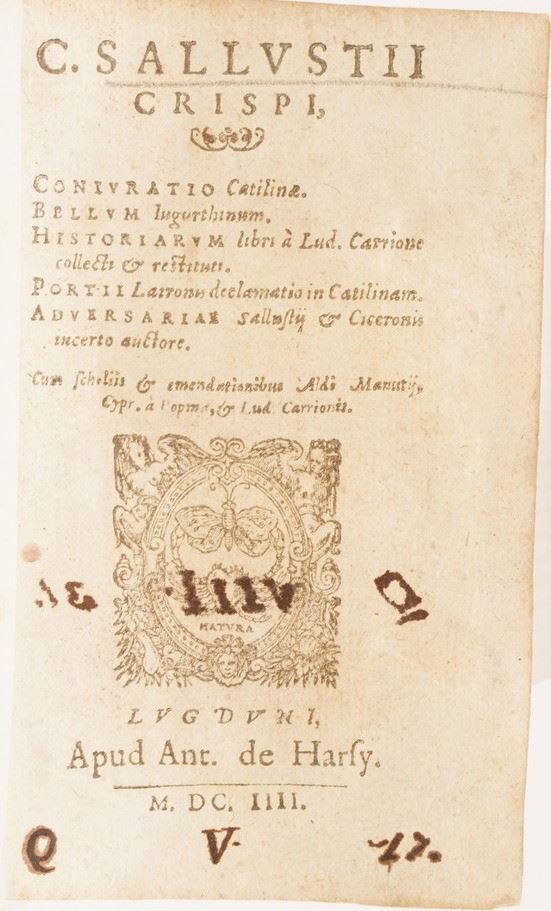 C. SALLVSTII
CRISPI,
CONIVRATIO Catilinæ.
BELLVM Iugurthinum.
HISTORIARVM libri à Lud. Carrione
collecti & restituti.
PORTII Latronis declamatio in Catilinam.
ADVERSARIAE Sallustij & Ciceronis
incerto auctore.
Cum scholiis & emendationibus Aldi Manutij,
Cypr. à Popma, & Lud. Carrionis.
MATVRA
LVGDVNI,
Apud Ant. de Harsy.
M. DC. IIII.
V.